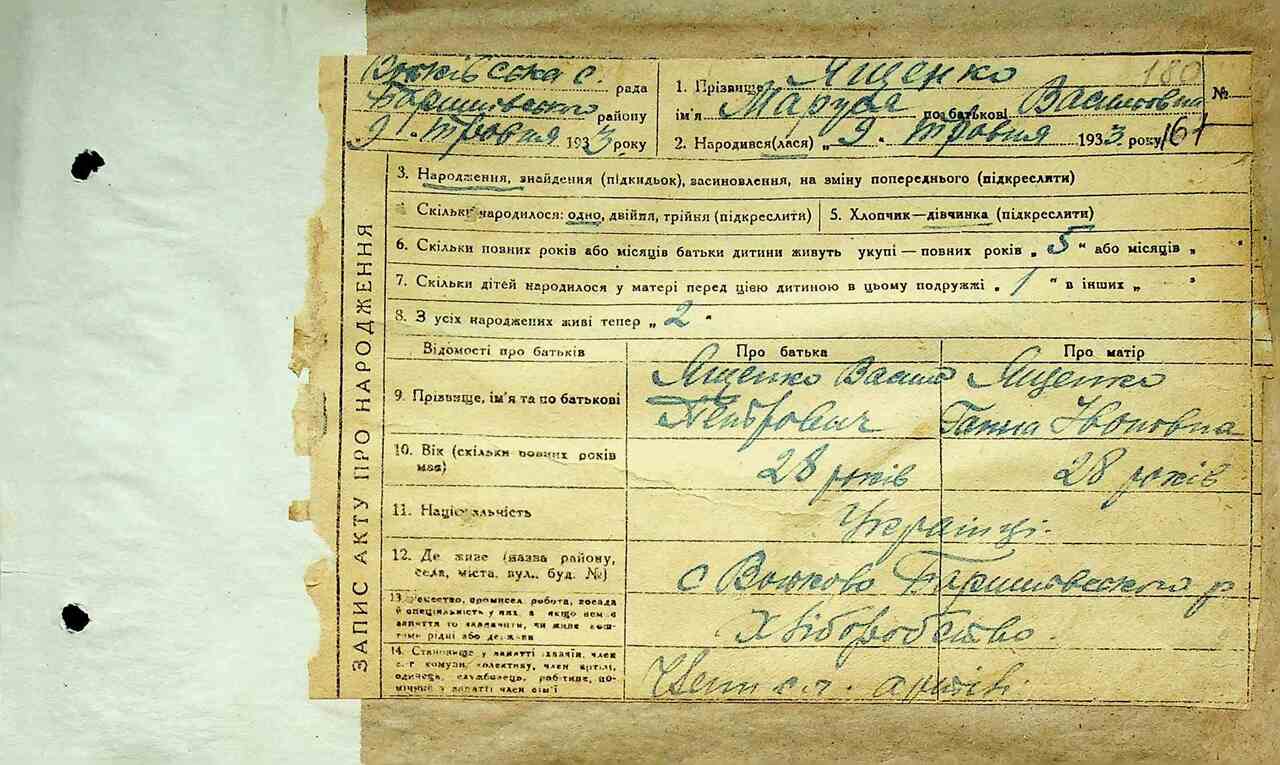 ЗАПИС АКТУ ПРО НАРОДЖЕННЯ
с. рада
Баришівського району
9. травня 1933 року
1. Прізвище Ященко 180
ім'я Маруся по батькові Василівна №
2. Народився(лася) „ 9 " травня 1933 року 167
3. Народження, знайдення (підкидьок), васиновлення, на зміну попереднього (підкреслити)
4 Скільки народилося: одно, двійня, трійня (підкреслити) 5. Хлопчик—дівчинка (підкреслити)
6. Скільки повних років або місяців батьки дитини живуть укупі — повних років „ 5 " або місяців „ "
7. Скільки дітей народилося у матері перед цією дитиною в цьому подружжі „ 1 " в інших „ "
8. З усіх народжених живі тепер „ 2 "
Відомості про батьків Про батька Про матір
9. Прізвище, ім'я та по батькові Ященко Василь Петрович Ященко Ганна Івановна
10. Вік (скільки повних років має) 28 років 28 років
11. Національність Українці.
12. Де живе (назва району, села, міста, вул., буд. №) с Баришовського р
13. робота, посада й спеціальність у них, а якщо нема заняття то зазначити, чи живе коштами рідні або держави Хліборобство.
14. Становище у занятті член с.-г комуни, колективу, член артілі, одинець, службовець, робітник, помічник в занятті член сім'ї артілі